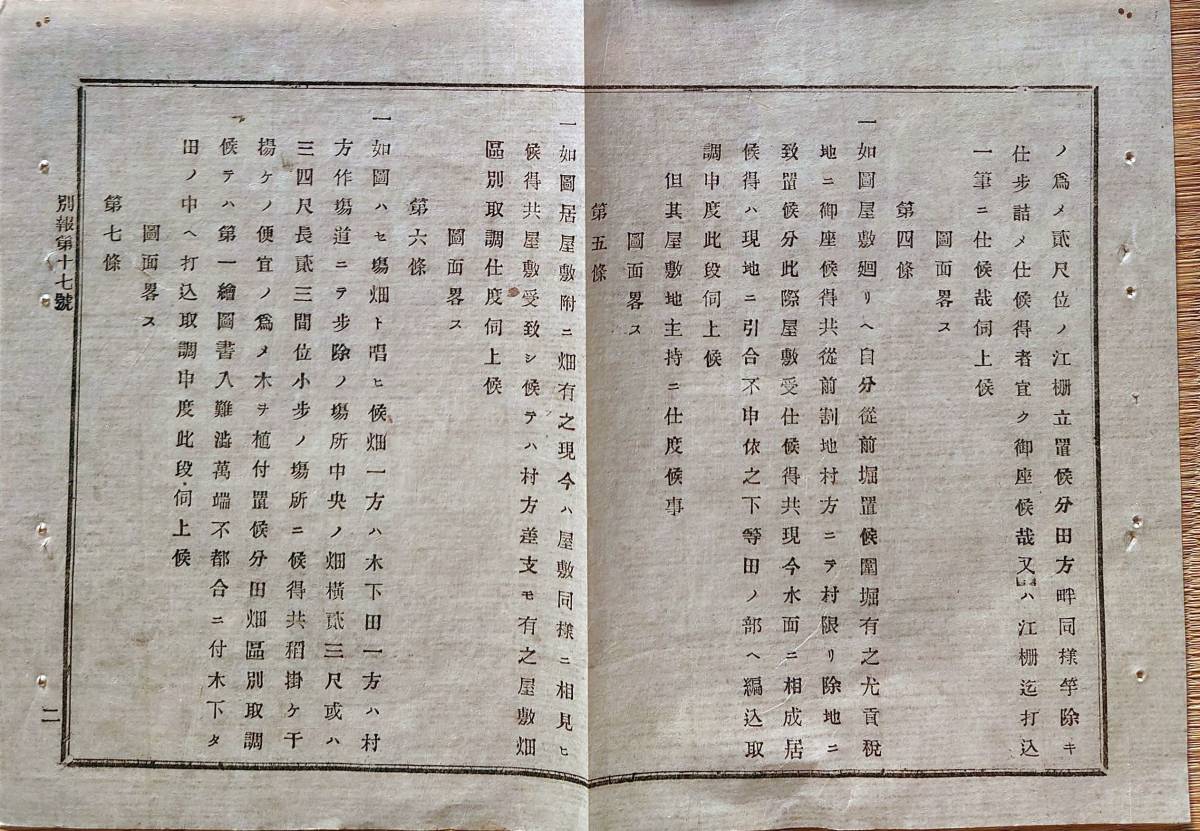 ノ爲メ貳尺位ノ江柵立置候分田方畔同様竿除キ
仕歩詰メ仕候得者宜ク御座候哉又ハ江柵迄打込
一筆ニ仕候哉伺上候
圖面畧ス
第四條
一如圖屋敷廻リヘ自分從前堀置候圍堀有之尤貢税
地ニ御座候得共從前割地村方ニテ村限リ除地ニ
致置候分此際屋敷受仕候得共現今水面ニ相成居
候得ハ現地ニ引合不申依之下等田ノ部ヘ編込取
調申度此段伺上候
但其屋敷地主持ニ仕度候事
圖面畧ス
第五條
一如圖居屋敷附ニ畑有之現今ハ屋敷同様ニ相見ヒ
候得共屋敷受致シ候テハ村方差支モ有之屋敷畑
區別取調仕度伺上候
圖面畧ス
第六條
一如圖ハセ塲畑ト唱ヒ候畑一方ハ木下田一方ハ村
方作塲道ニテ步除ノ塲所中央ノ畑橫貳三尺或ハ
三四尺長貳三間位小步ノ塲所ニ候得共稻掛ケ干
揚ケノ便宜ノ爲メ木ヲ植付置候分田畑區別取調
候テハ第一繪圖書入難澁萬端不都合ニ付木下タ
田ノ中ヘ打込取調申度此段伺上候
圖面畧ス
第七條
別報第十七號
二